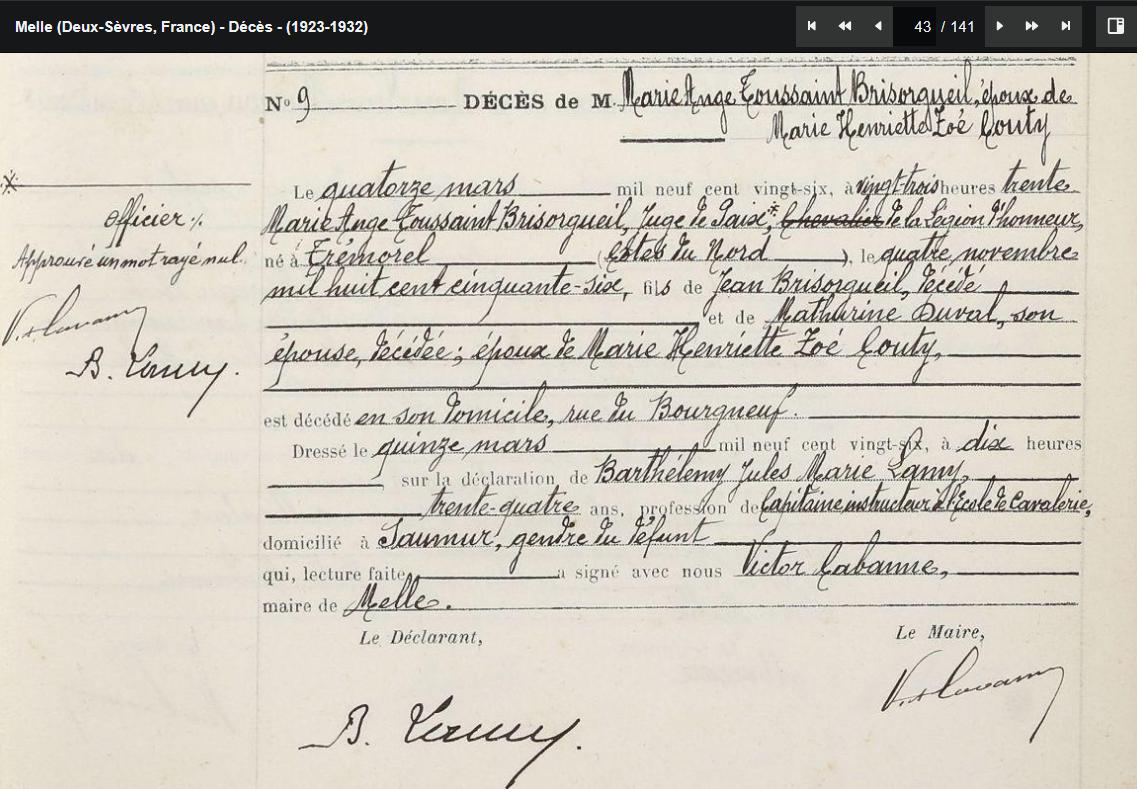 Melle (Deux-Sèvres, France) - Décès - (1923-1932)
43 / 141
N° 9 DÉCÈS de M. Marie Ange Toussaint Brisorgueil, époux de
Marie Henriette Zoé Couty
Le quatorze mars mil neuf cent vingt-six, à vingt-trois heures trente
Marie Ange Toussaint Brisorgueil, Juge de Paix, * Chevalier de la Légion d'honneur,
né à Trémorel (Côtes du Nord), le quatre novembre
mil huit cent cinquante-six, fils de Jean Brisorgueil, décédé
et de Mathurine Duval, son
épouse, décédée ; époux de Marie Henriette Zoé Couty,
est décédé en son domicile, rue du Bourgneuf.
Dressé le quinze mars mil neuf cent vingt-six, à dix heures
, sur la déclaration de Barthélemy Jules Marie Lamy,
trente-quatre ans, profession de Capitaine instructeur à l'Ecole de Cavalerie,
domicilié à Saumur, gendre du défunt
qui, lecture faite, a signé avec nous Victor Cabanne,
maire de Melle.
Le Déclarant, Le Maire,
B. Lamy.
*
officier ./.
Approuvé un mot rayé nul.
B. Lamy.